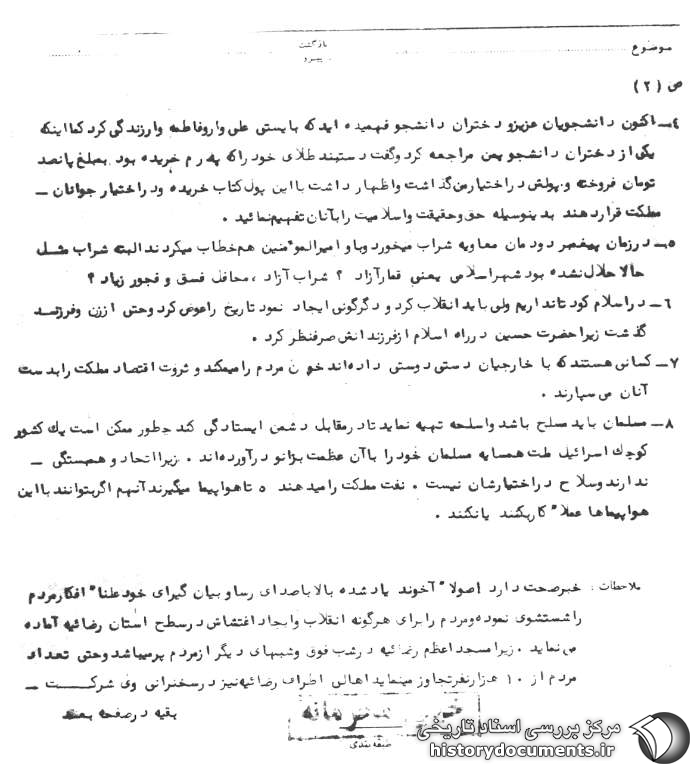 بازگشت
پیرو
موضوع
ص (۲)
۴ــ اکنون دانشجویان عزیز و دختران دانشجو فهمیده اید که بایستی علی وار و فاطمه وار زندگی کرد کما اینکه
یکی از دختران دانشجو بمن مراجعه کرد و گفت دستبند طلای خود را که پدرم خریده بود بمبلغ پانصد
تومان فروخته و پولش در اختیار من گذاشت و اظهار داشت با این پول کتاب خریده و در اختیار جوانان ــ
مملکت قرار دهند بدینوسیله حق و حقیقت و اسلامیت را بآنان تفهیم نمائید .
۵ــ در زمان پیغمبر دودمان معاویه شراب میخورد و با و امیرالمؤمنین هم خطاب میکردند البته شراب مثل
حالا حلال نشده بود شهر اسلامی یعنی قمار آزاد ؟ شراب آزاد ، محافل فسق و فجور زیاد ؟
۶ــ در اسلام کودتا نداریم ولی باید انقلاب کرد و دگرگونی ایجاد نمود تاریخ را عوض کرد و حتی از زن و فرزند
گذشت زیرا حضرت حسین در راه اسلام از فرزندانش صرفنظر کرد .
۷ــ کسانی هستند که با خارجیان دستی دوستی داده اند خون مردم را میمکند و ثروت اقتصاد مملکت را بدست
آنان می سپارند .
۸ــ مسلمان باید مسلح باشد و اسلحه تهیه نماید تا در مقابل دشمن ایستادگی کند چطور ممکن است یك کشور
کوچك اسرائیل ملت همسایه مسلمان خود را با آن عظمت بزانو درآورده اند . زیرا اتحاد و همبستگی ــ
ندارند و سلاح در اختیارشان نیست . نفت مملکت را میدهند ۵ تا هواپیما میگیرند آنهم اگر بتوانند با این
هواپیماها عملا" کار بکنند یا نکنند .
ملاحظات : خبر صحت دارد اصولا" آخوند یاد شده بالا با صدای رسا و بیان گیرای خود علنا" افکار مردم
را شستشوی نموده و مردم را برای هرگونه انقلاب و ایجاد اغتشاش در سطح استان رضائیه آماده
می نماید . زیرا مسجد اعظم رضائیه در شب فوق و شبهای دیگر از مردم پر میباشد و حتی تعداد
مردم از ۱۰ هزار نفر تجاوز مینماید اهالی اطراف رضائیه نیز در سخنرانی وی شرکت ــ
بقیه در صفحه بعد
خیلی محرمانه
طبقه بندی
مرکز بررسی اسناد تاریخی
historydocuments.ir